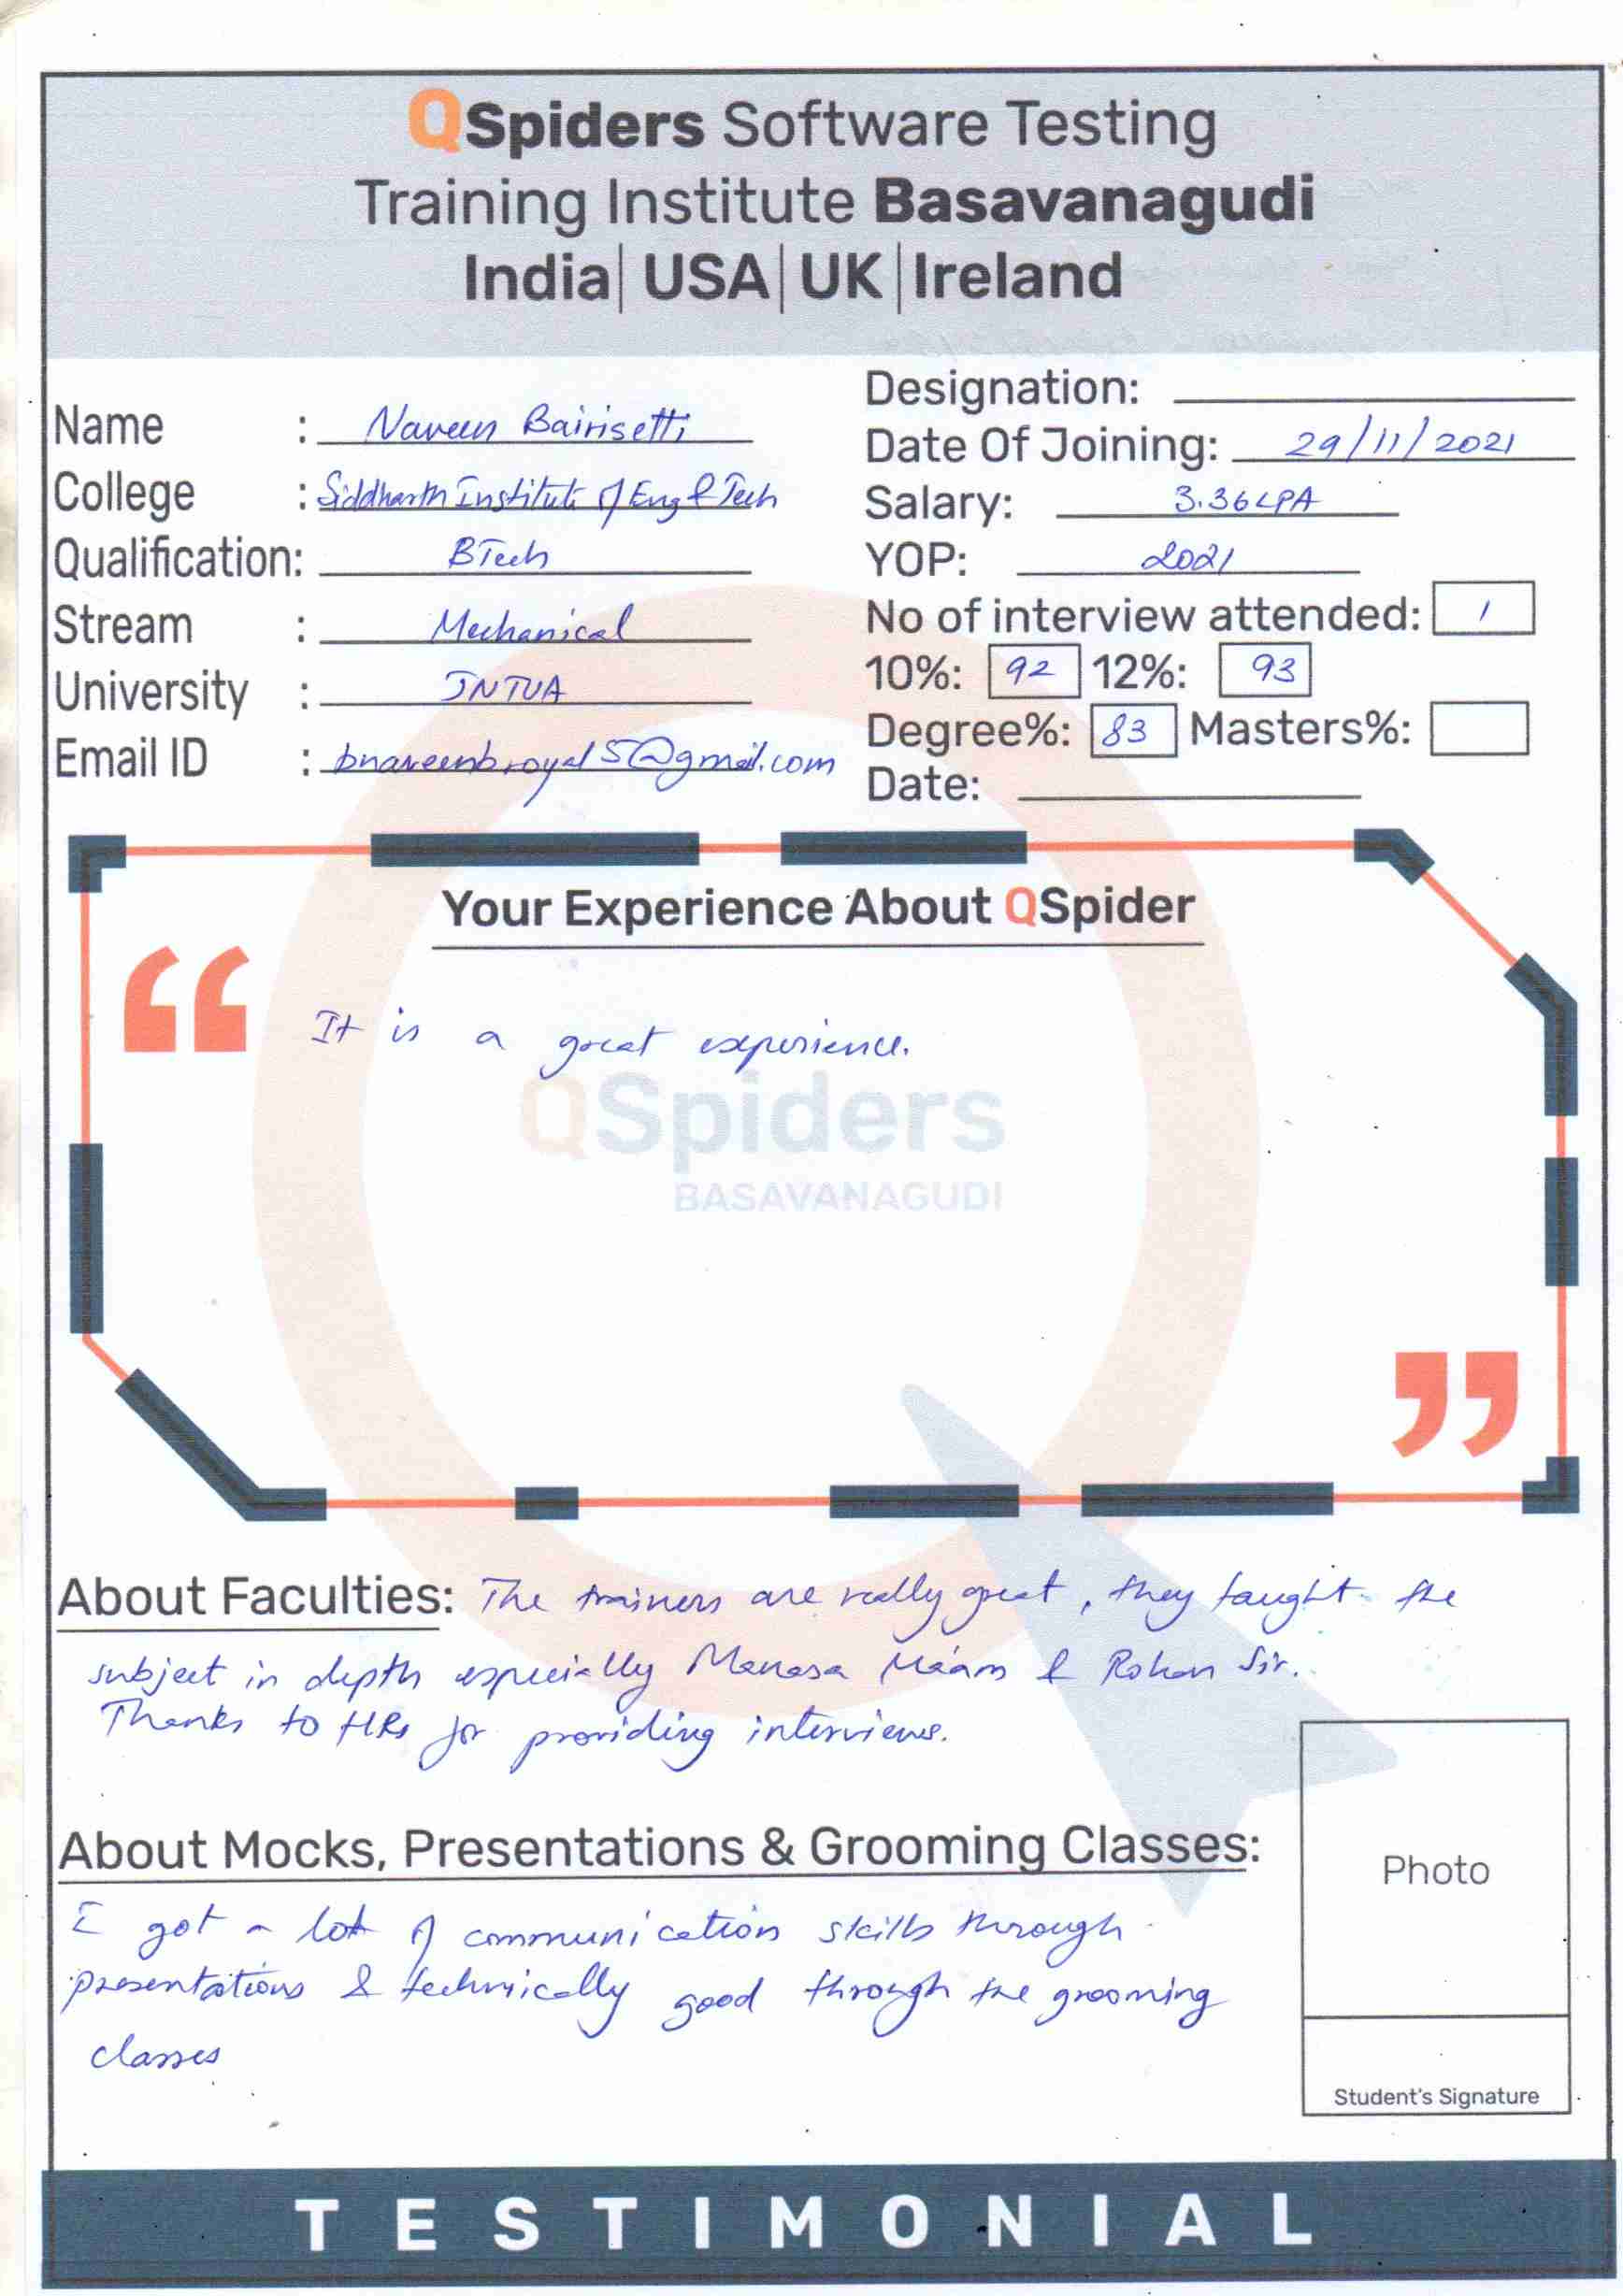 QSpiders Software Testing
Training Institute Basavanagudi
India| USA| UK| Ireland
Name : Naveen Bairisetti
College : Siddharth Institute of Eng & Tech
Qualification: BTech
Stream : Mechanical
University : JNTUA
Email ID : bnaveenbroyal5@gmail.com
Designation:
Date Of Joining: 29/11/2021
Salary: 3.36LPA
YOP: 2021
No of interview attended: 1
10%: 92 12%: 93
Degree%: 83 Masters%:
Date:
Your Experience About QSpider
“
It is a great experience.
QSpiders
BASAVANAGUDI
”
About Faculties: The trainers are really great, they taught the
subject in depth especially Manasa Ma'am & Rohan Sir.
Thanks to HRs for providing interviews.
About Mocks, Presentations & Grooming Classes:
I got a lot of communication skills through
presentations & technically good through the grooming
classes
Photo
Student's Signature
TESTIMONIAL